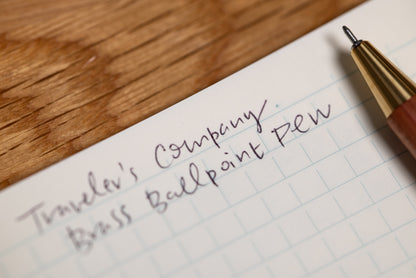 Traveler's Company.
Brass Ballpoint Pen